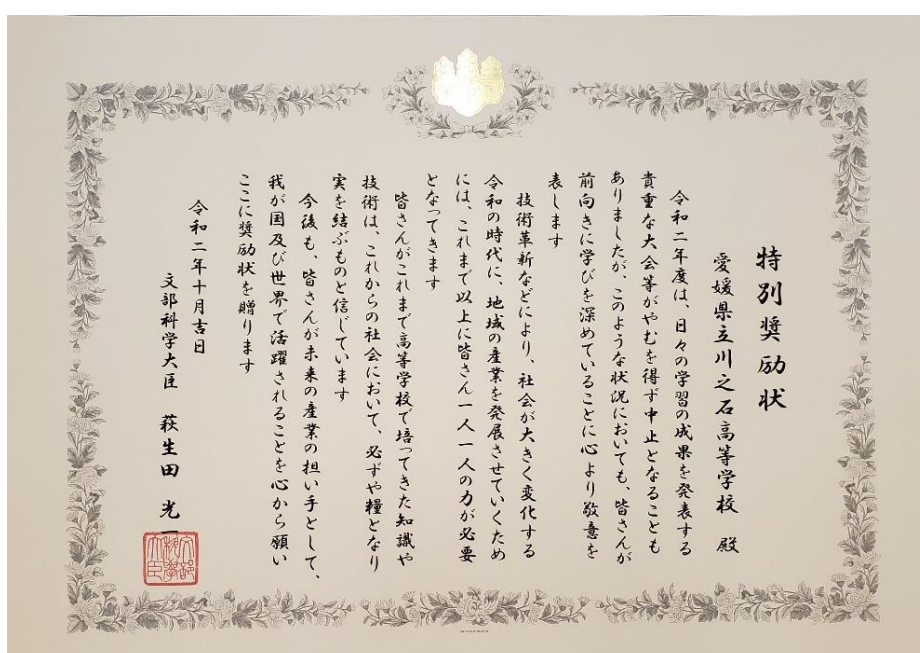 特別奨励状
愛媛県立川之石高等学校 殿
令和二年度は、日々の学習の成果を発表する
貴重な大会等がやむを得ず中止となることも
ありましたが、このような状況においても、皆さんが
前向きに学びを深めていることに心より敬意を
表します
技術革新などにより、社会が大きく変化する
令和の時代に、地域の産業を発展させていくため
には、これまで以上に皆さん一人一人の力が必要
となってきます
皆さんがこれまで高等学校で培ってきた知識や
技術は、これからの社会において、必ずや糧となり
実を結ぶものと信じています
今後も、皆さんが未来の産業の担い手として、
我が国及び世界で活躍されることを心から願い
ここに奨励状を贈ります
令和二年十月吉日
文部科学大臣 萩生田 光一